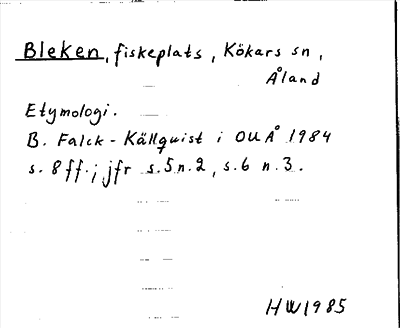 Bleken, fiskeplats, Kökars sn,
Åland
Etymologi.
B. Falck-Källquist i OUÅ 1984
s. 8 ff.; jfr s. 5 n. 2, s. 6 n. 3.
HW 1985